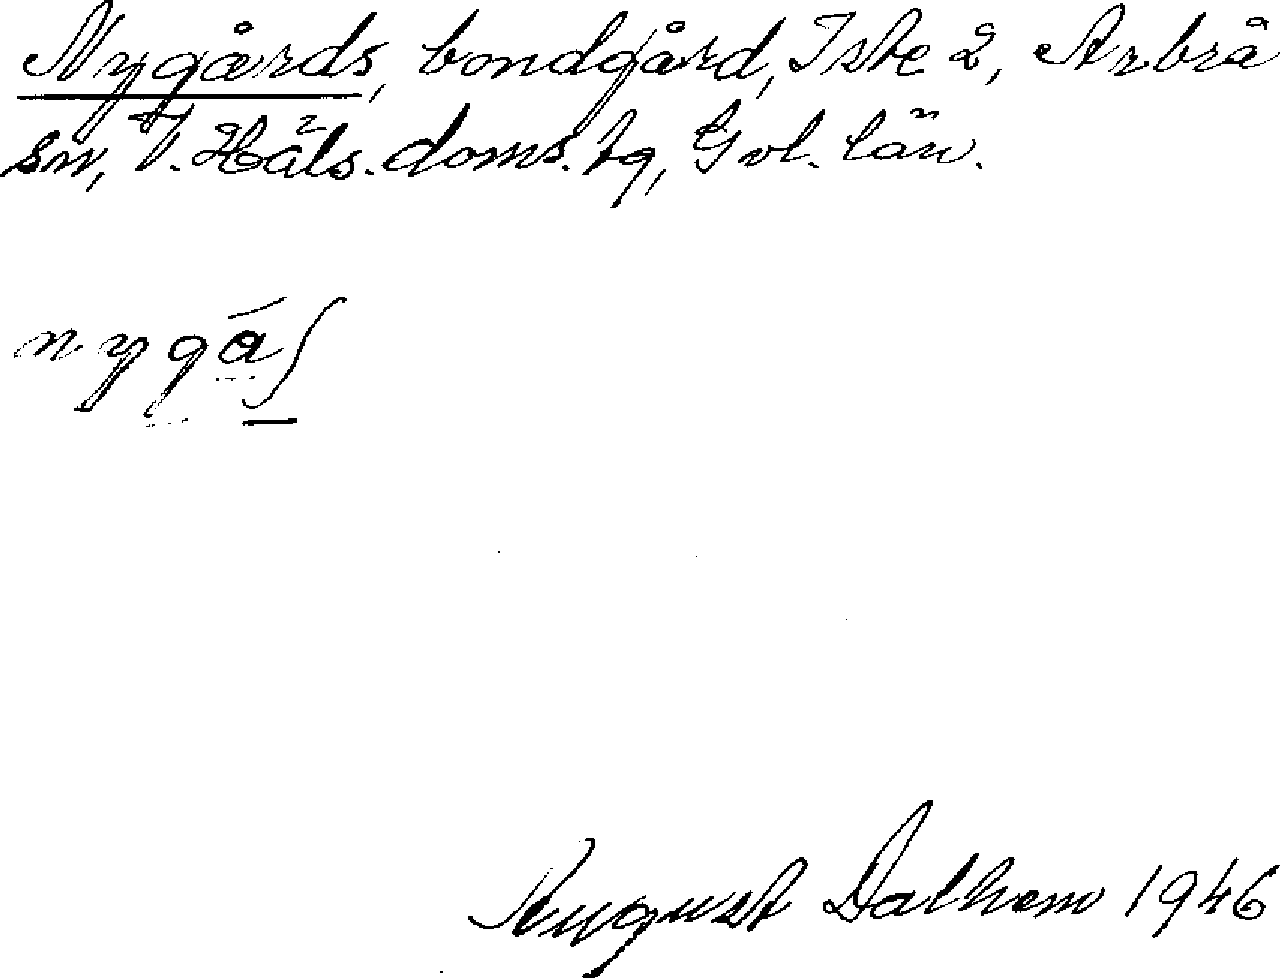 Nygårds, bondgård, Iste 2, Arbrå
sn, V. Häls. doms. tg, Gvl. län.
nygáʃ
August Dalhem 1946